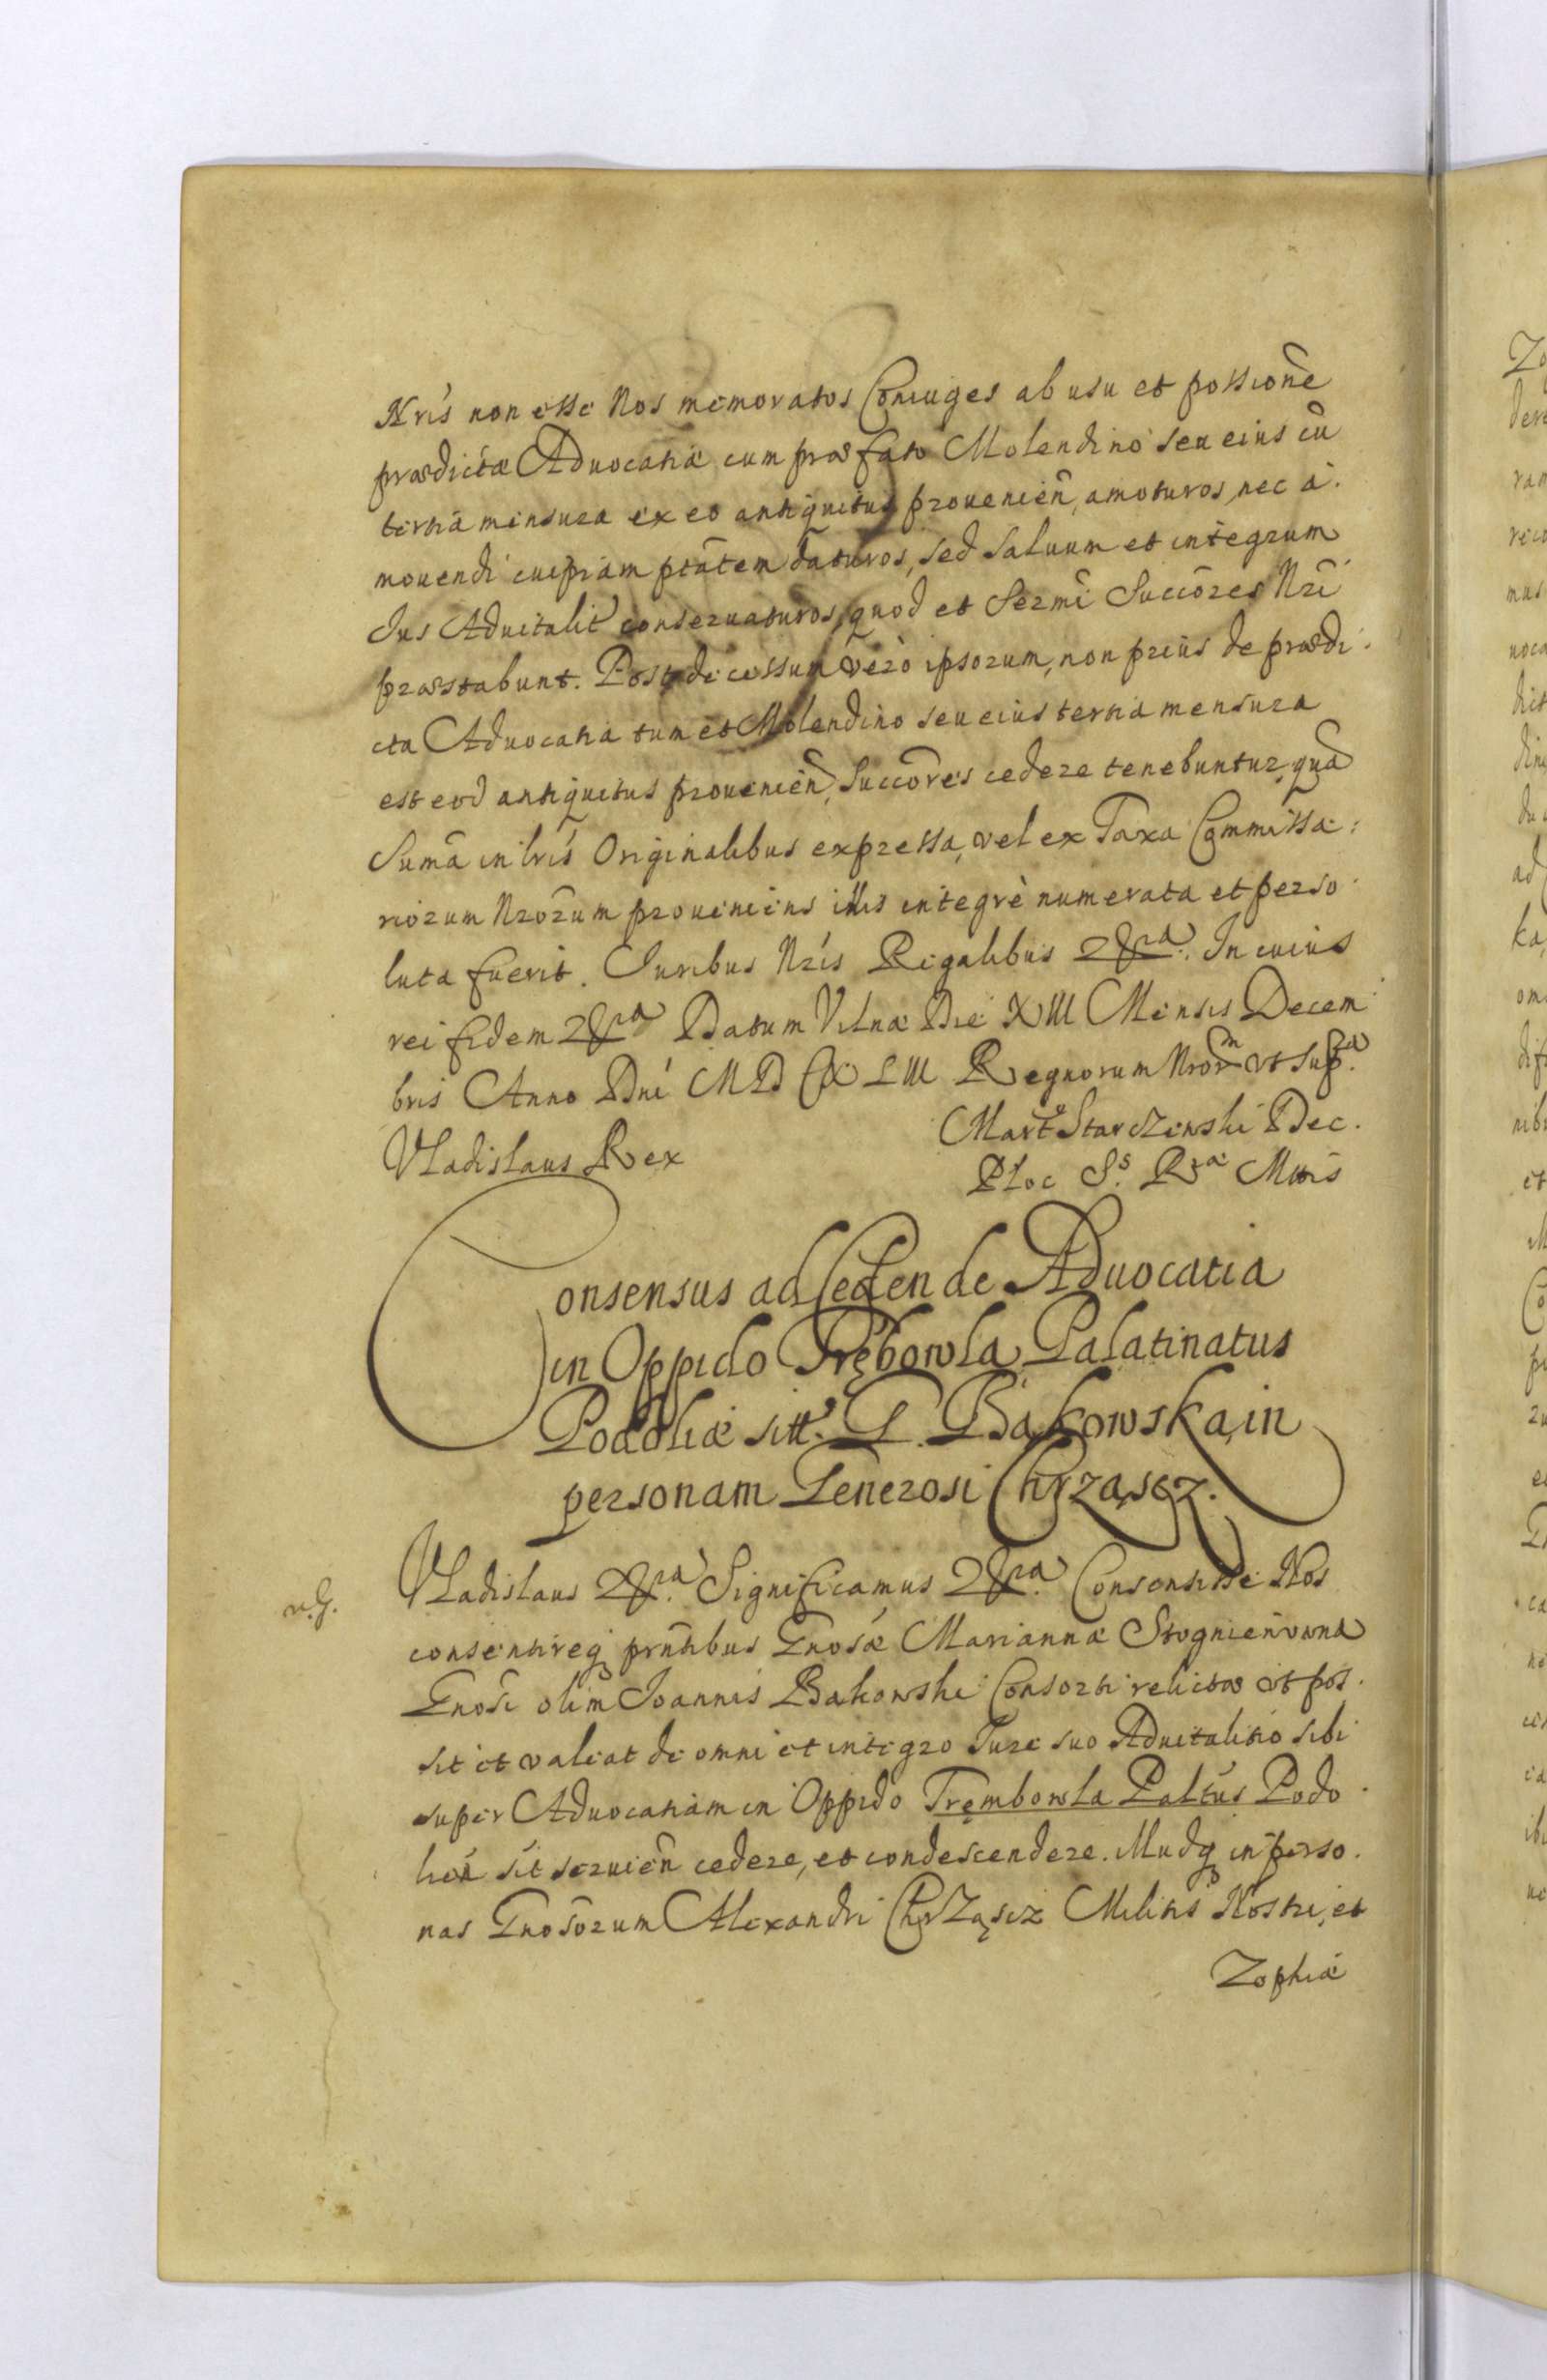 Nrîs non esse Nos memoratos Coniuges ab usu et possione
prædictæ Aduocatiæ cum præfato Molendino seu eius cũ
tertia mensura ex eo antiquitus prouenień, amoturos, nec a
mouendi cuipiam ptãtem daturos, sed saluum et integrum
Ius Aduitalit̃ conseruaturos, quod et Sermĩ Succõres Nrĩ
præstabunt. Post decessum verò ipsorum, non priùs de prædi
cta Aduocatia tum et Molendino seu eius tertia mensura
est eod antiquitus prouenień, Succõres cedere tenebuntur, quã
Sumã in lrĩs Originalibus expressa, vel ex Taxa Commissa:
riorum Nrõrum proueniens illis integrè numerata et perso
luta fuerit. Iuribus Nrĩs Regalibus &ra. In cuius
rei fidem &ra Datum Vilnæ Die XIII Mensis Decem
bris Anno Dnĩ MDCXLIII Regnorum Nrorm vt supra
Mart Starczewski Dec.
Vladislaus Rex
Ploc S.s Ra Mttis
Consensus ad Ceden de Aduocatia
in Oppido Trębowla Palatinatus
Podoliæ sitt. G. Bąkowska, in
personam Generosi Chrząscz.
Vladislaus &ra. Significamus &ra. Consensisse Nos
consentireq prñtibus Gnosæ Mariannæ Stogniewowna
Gnosi olim Joannis Bakowski Consorti relictæ vt pos
sit et valeat de omni et integro Iure suo Aduitalitio sibi
super Aduocatiam in Oppido Trembowla Paltûs Podo
lień sit seruień cedere, et condescendere. Mudq in perso
nas Gnosorum Alexandri Chrząscz Militis Nostri, et
Zophiæ